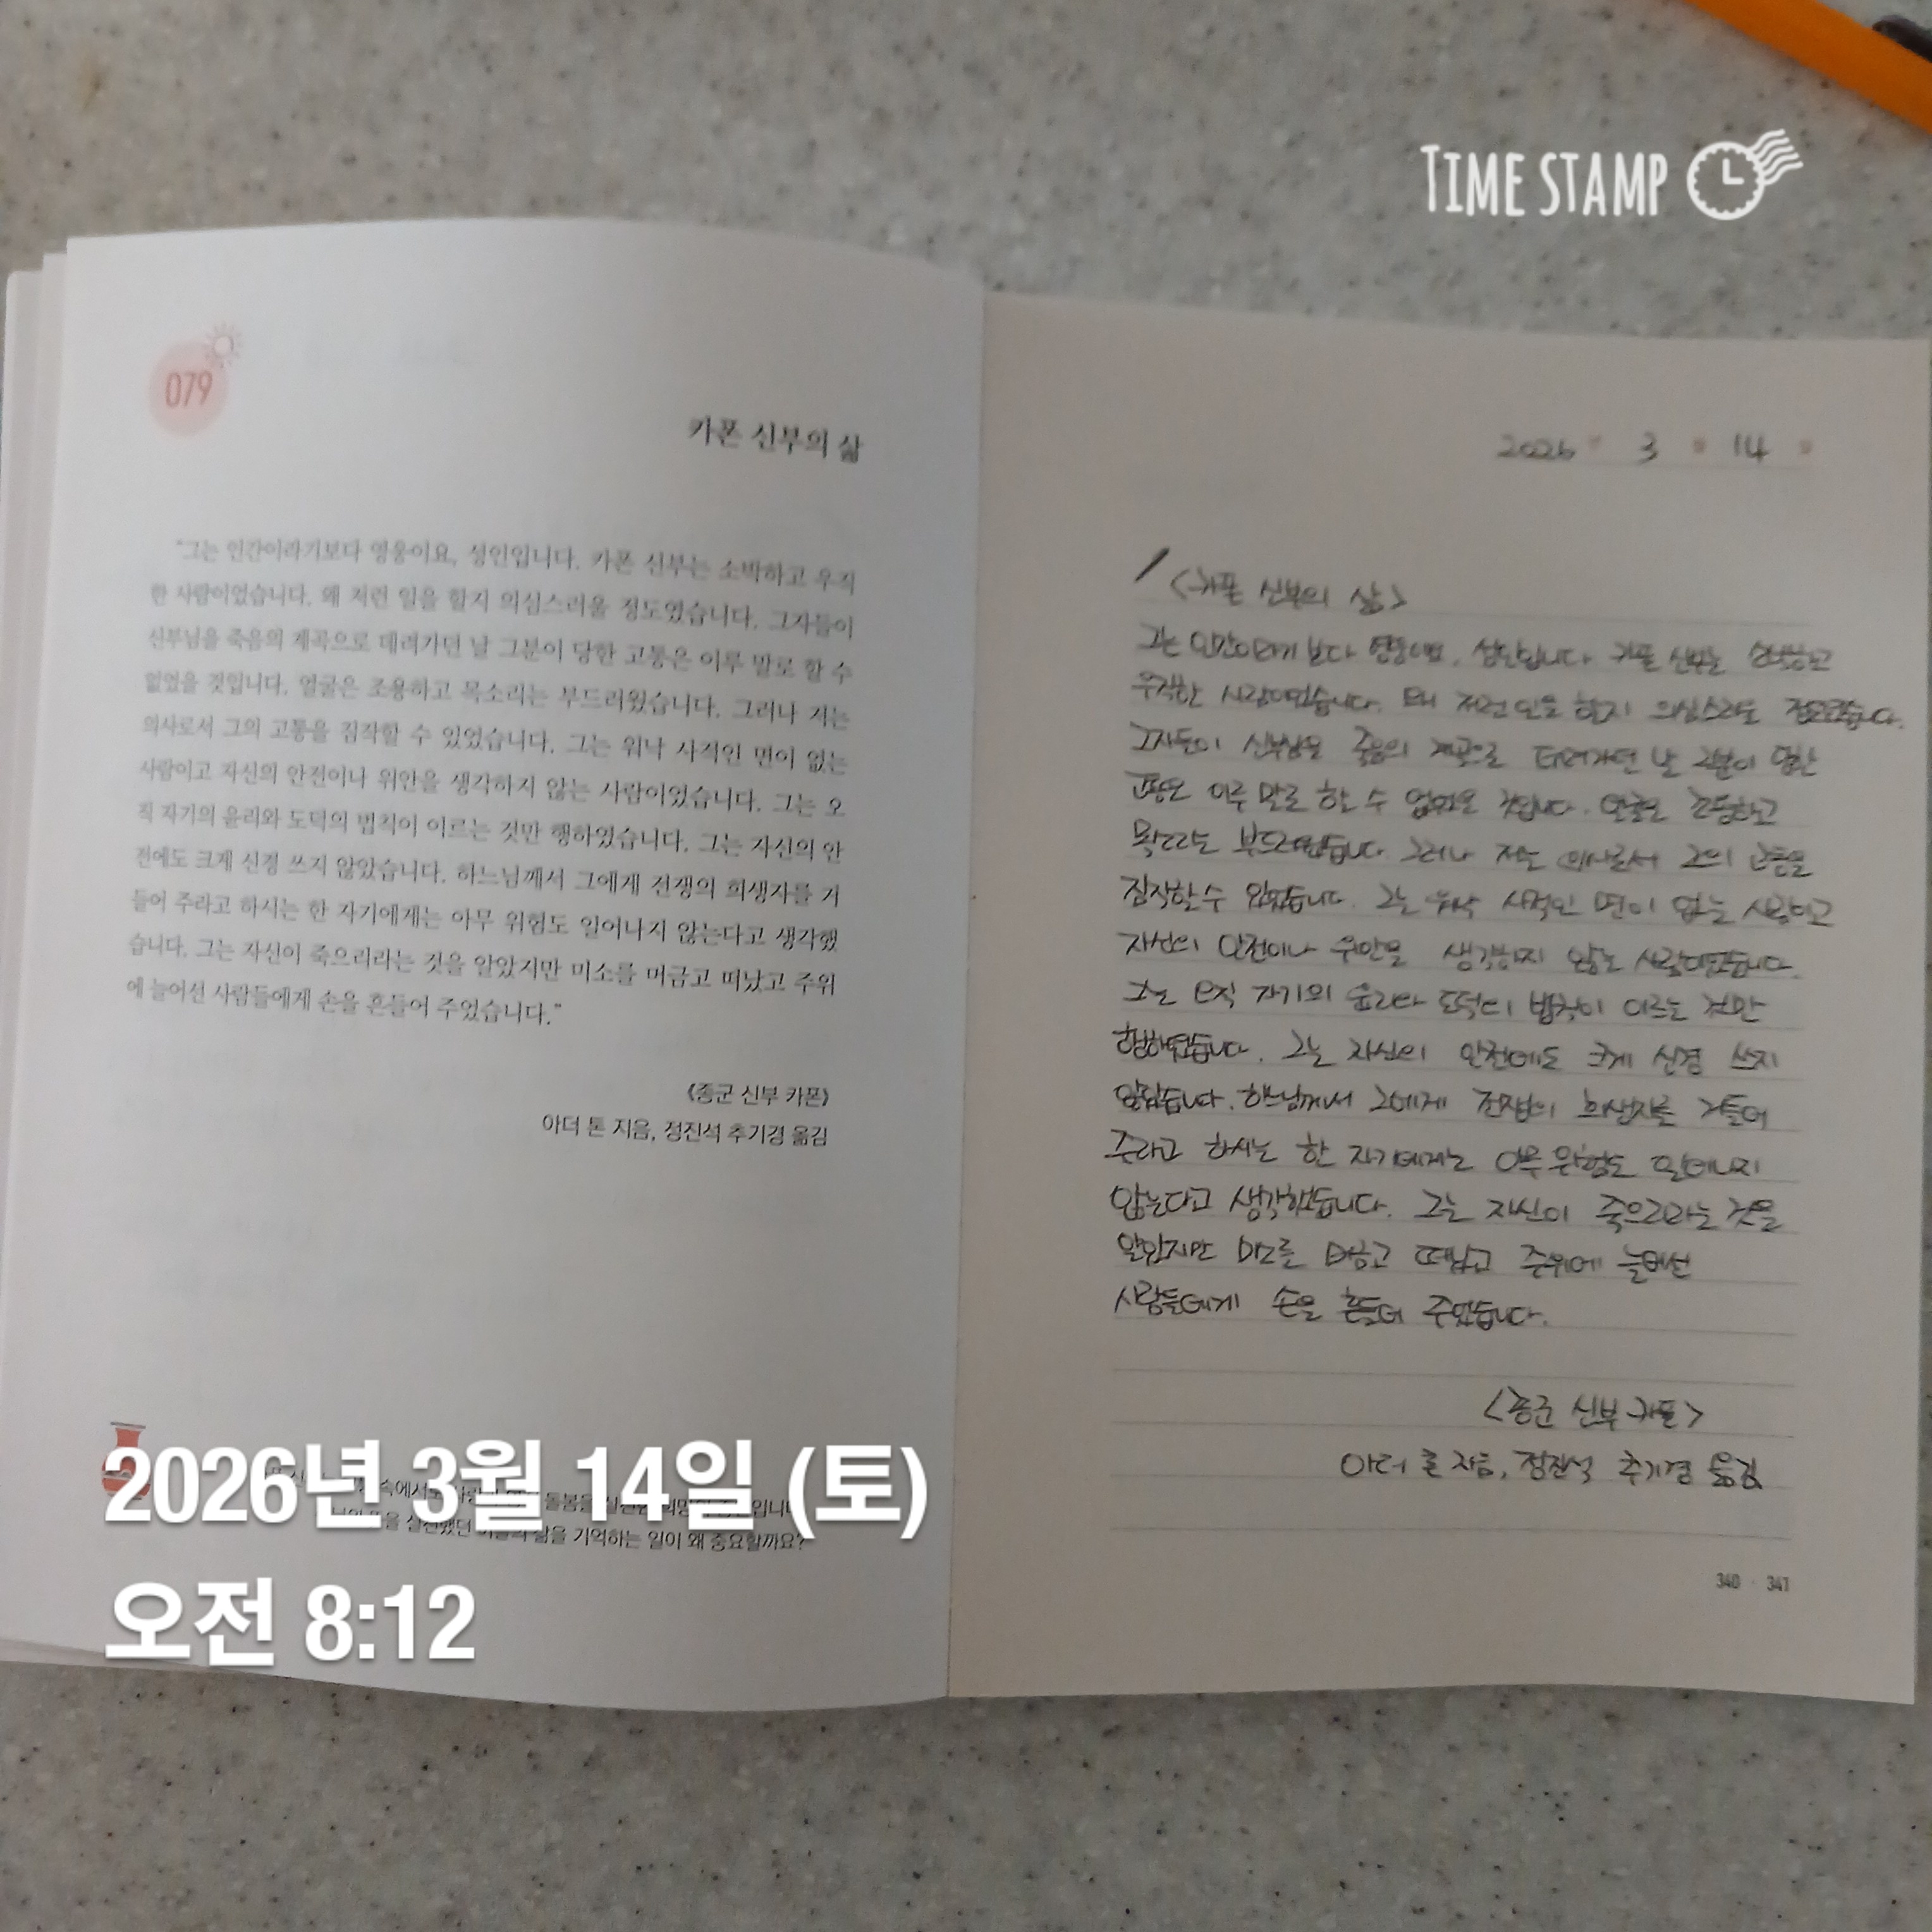 TIME STAMP
079
카폰 신부의 삶
"그는 인간이라기보다 영웅이요, 성인입니다. 카폰 신부는 소박하고 우직
한 사람이었습니다. 왜 저런 일을 할지 의심스러울 정도였습니다. 그자들이
신부님을 죽음의 계곡으로 데려가던 날 그분이 당한 고통은 이루 말로 할 수
없었을 것입니다. 얼굴은 조용하고 목소리는 부드러웠습니다. 그러나 저는
의사로서 그의 고통을 짐작할 수 있었습니다. 그는 워낙 사적인 면이 없는
사람이고 자신의 안전이나 위안을 생각하지 않는 사람이었습니다. 그는 오
직 자기의 윤리와 도덕의 법칙이 이르는 것만 행하였습니다. 그는 자신의 안
전에도 크게 신경 쓰지 않았습니다. 하느님께서 그에게 전쟁의 희생자를 거
들어 주라고 하시는 한 자기에게는 아무 위험도 일어나지 않는다고 생각했
습니다. 그는 자신이 죽으리라는 것을 알았지만 미소를 머금고 떠났고 주위
에 늘어선 사람들에게 손을 흔들어 주었습니다."
《종군 신부 카폰》
아더 톤 지음, 정진석 추기경 옮김
속에서도
기억하는 일이 왜 중요할까요?
2026년 3월 14일 (토)
오전 8:12
2026 3 14
<카폰 신부의 삶>
그는 인간이라기 보다 영웅이요, 성인입니다 카폰 신부는 소박하고
우직한 사람이었습니다. 왜 저런 일을 할지 의심스러울 정도였습니다.
그자들이 신부님을 죽음의 계곡으로 데려가던 날 그분이 당한
고통은 이루 말로 할 수 없었을 것입니다. 얼굴은 조용하고
목소리는 부드러웠습니다. 그러나 저는 의사로서 그의 고통을
짐작할 수 있었습니다. 그는 워낙 사적인 면이 없는 사람이고
자신의 안전이나 위안을 생각하지 않는 사람이었습니다.
그는 오직 자기의 윤리와 도덕의 법칙이 이르는 것만
행하였습니다. 그는 자신의 안전에도 크게 신경 쓰지
않았습니다. 하느님께서 그에게 전쟁의 희생자를 거들어
주라고 하시는 한 자기에게는 아무 위험도 일어나지
않는다고 생각했습니다. 그는 자신이 죽으리라는 것을
알았지만 미소를 머금고 떠났고 주위에 늘어선
사람들에게 손을 흔들어 주었습니다.
<종군 신부 카폰>
아더 톤 지음, 정진석 추기경 옮김
340 341